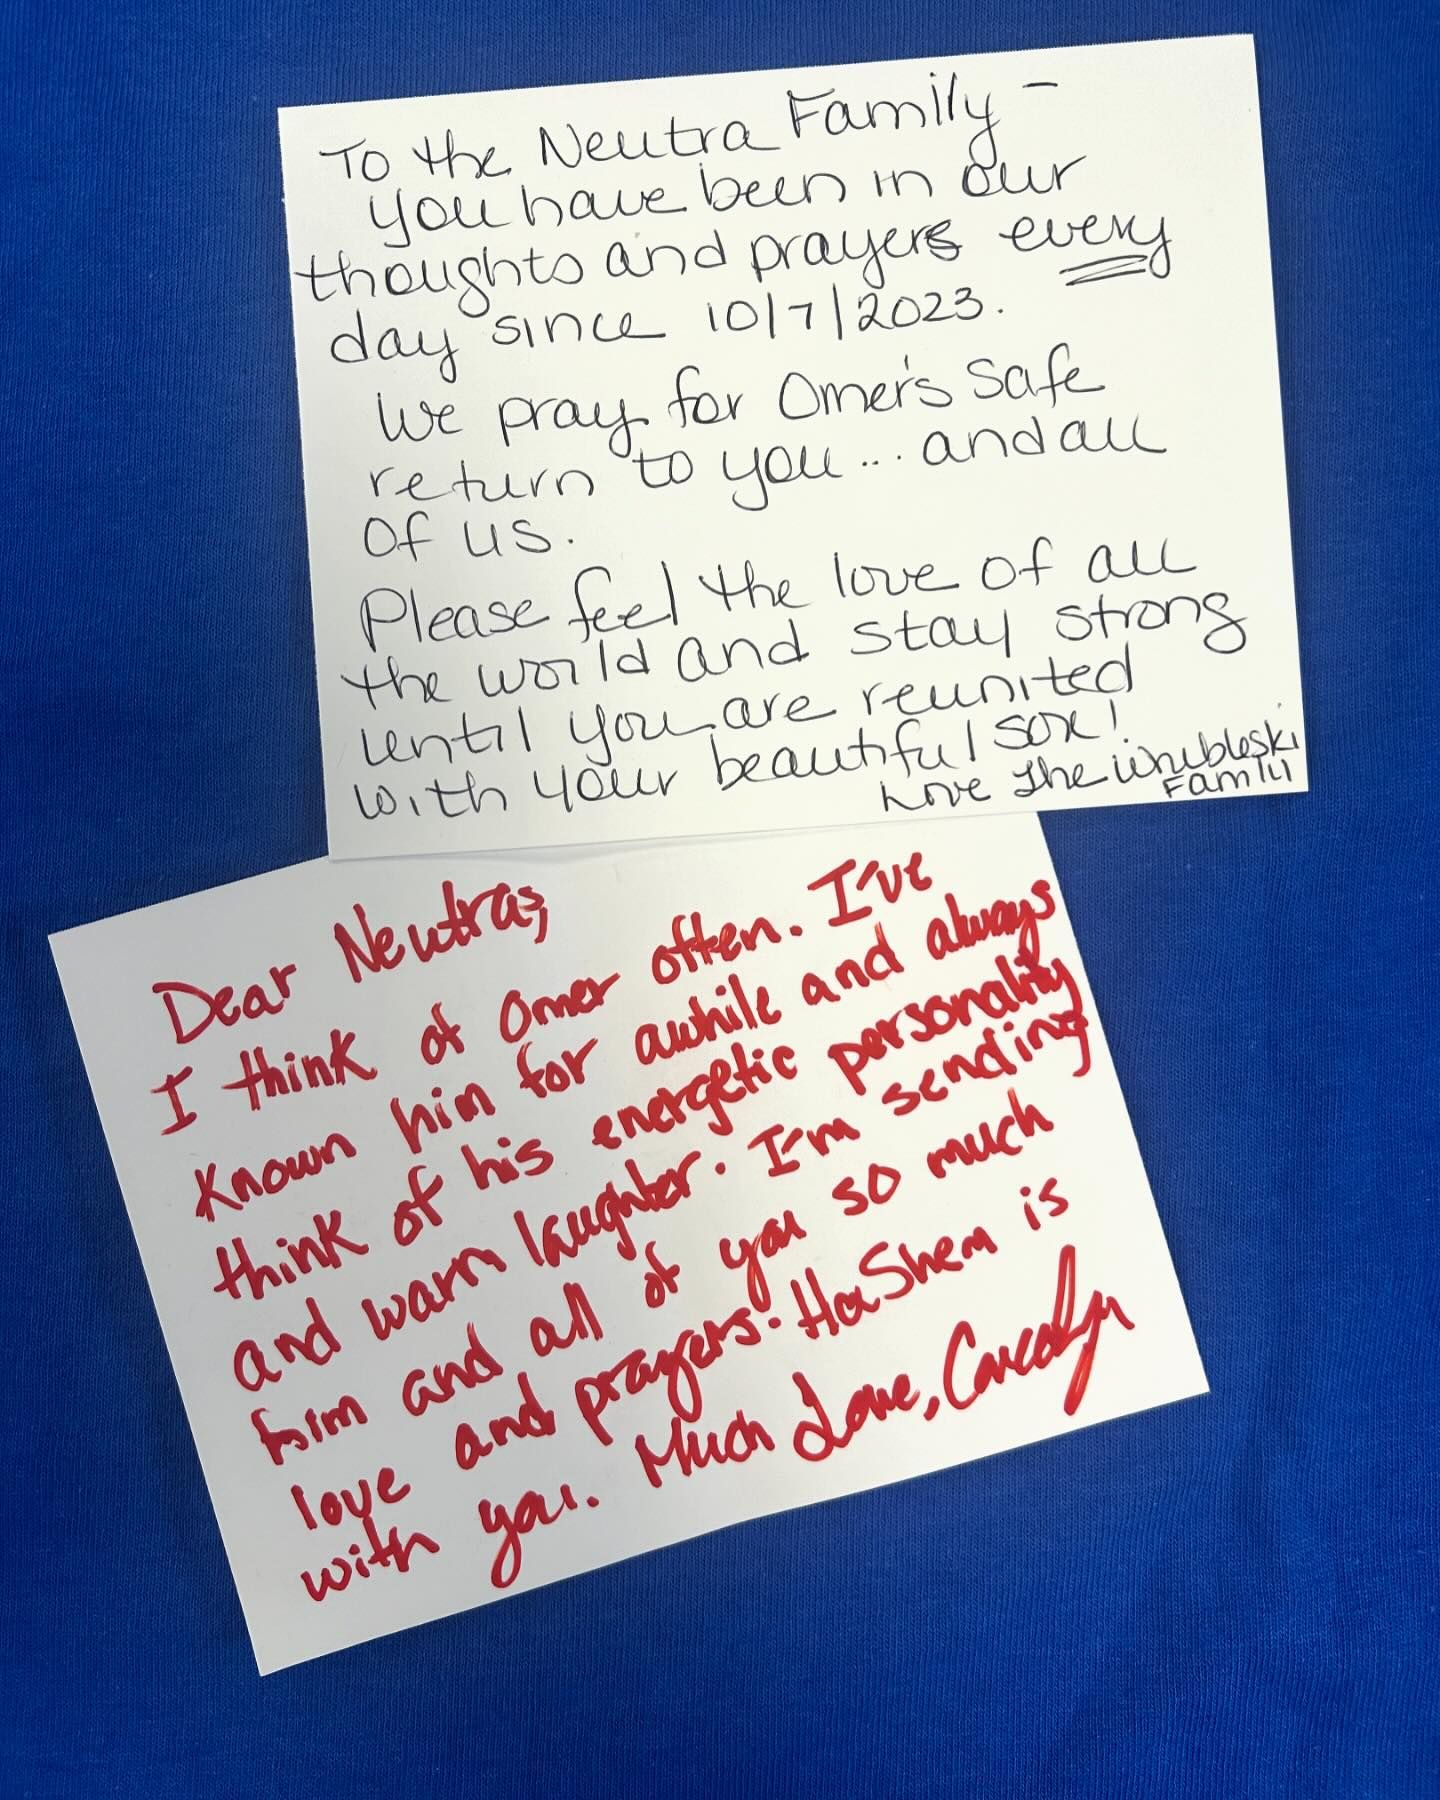 To the Neutra Family -
you have been in our
thoughts and prayers every
day since 10/7/2023.
We pray for Omer's safe
return to you... and all
of us.
Please feel the love of all
the world and stay strong
until you are reunited
with your beautiful son!
Love The Wrubleski
Family
Dear Neutras,
I think of Omer often. I've
known him for awhile and always
think of his energetic personality
and warm laughter. I'm sending
him and all of you so much
love and prayers. HaShem is
with you. Much Love,